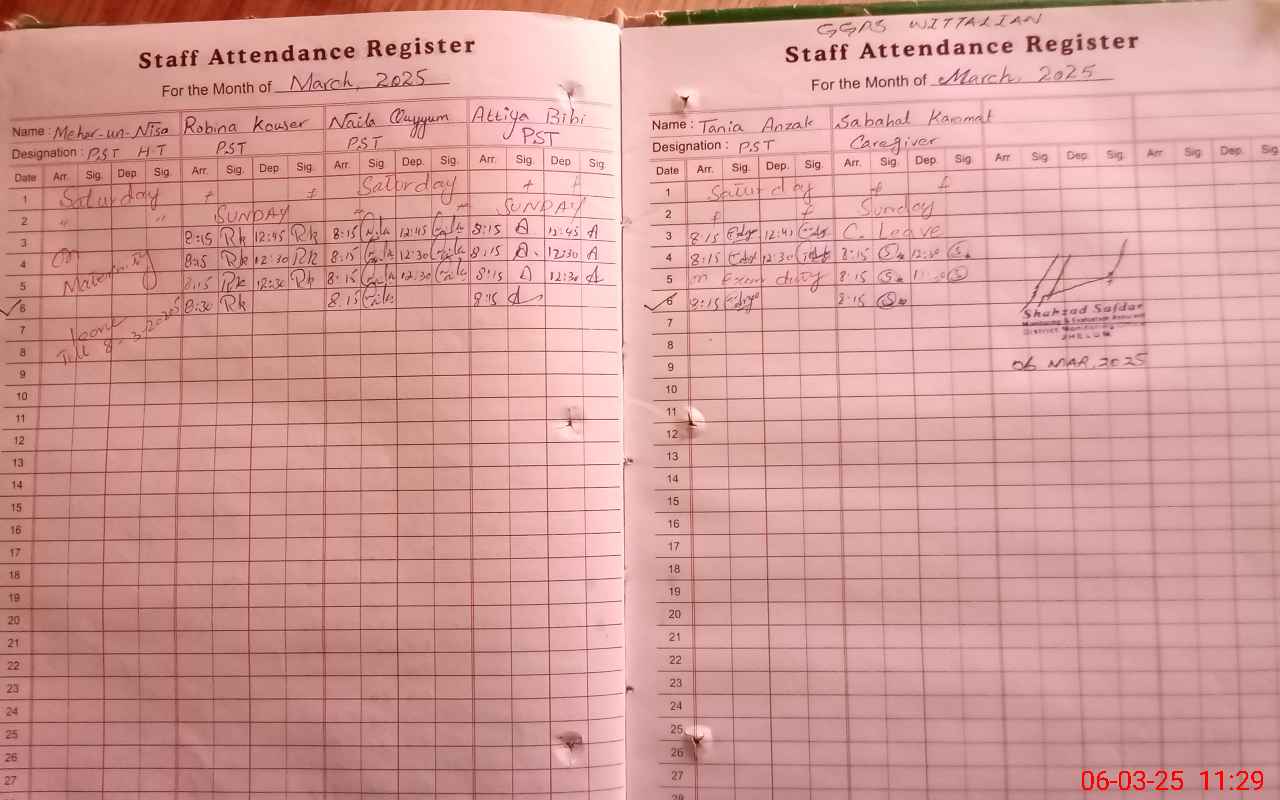 Staff Attendance Register
For the Month of March, 2025
Name : Mehar-un-Nisa Robina Kouser Naila Quyyum Attiya Bibi
Designation : PST HT PST PST PST
Date Arr. Sig. Dep. Sig. Arr. Sig. Dep. Sig. Arr. Sig. Dep. Sig. Arr. Sig. Dep. Sig.
1 Saturday Saturday
2 " " SUNDAY SUNDAY
3 8:15 Rk 12:45 Rk 8:15 12:45 8:15 A 12:45 A
4 On 8:15 Rk 12:30 Rk 8:15 12:30 8:15 A. 12:30 A
5 Maternity 8:15 Rk 12:30 Rk 8:15 12:30 8:15 A 12:30 A
6 8:30 Rk 8:15 8:15 A
7 leave
8 Till 8-3-2025
9
10
11
12
13
14
15
16
17
18
19
20
21
22
23
24
25
26
27
GGPS WITTALIAN
Staff Attendance Register
For the Month of March, 2025
Name : Tania Anzak Sabahal Karamat
Designation : PST Caregiver
Date Arr. Sig. Dep. Sig. Arr. Sig. Dep. Sig. Arr Sig. Dep. Sig. Arr Sig. Dep. Sig.
1 Saturday
2 Sunday
3 8:15 12:45 C. Leave
4 8:15 12:30 8:15 S. 12:30 S.
5 on Exam duty 8:15 S. S
6 8:15 8:15 S.
7
8
9
10
11
12
13
14
15
16
17
18
19
20
21
22
23
24
25
26
27
28
Shahzad Safdar
Monitoring & Evaluation Assistant
District Monitoring
JHELUM
06 MAR, 2025
06-03-25 11:29